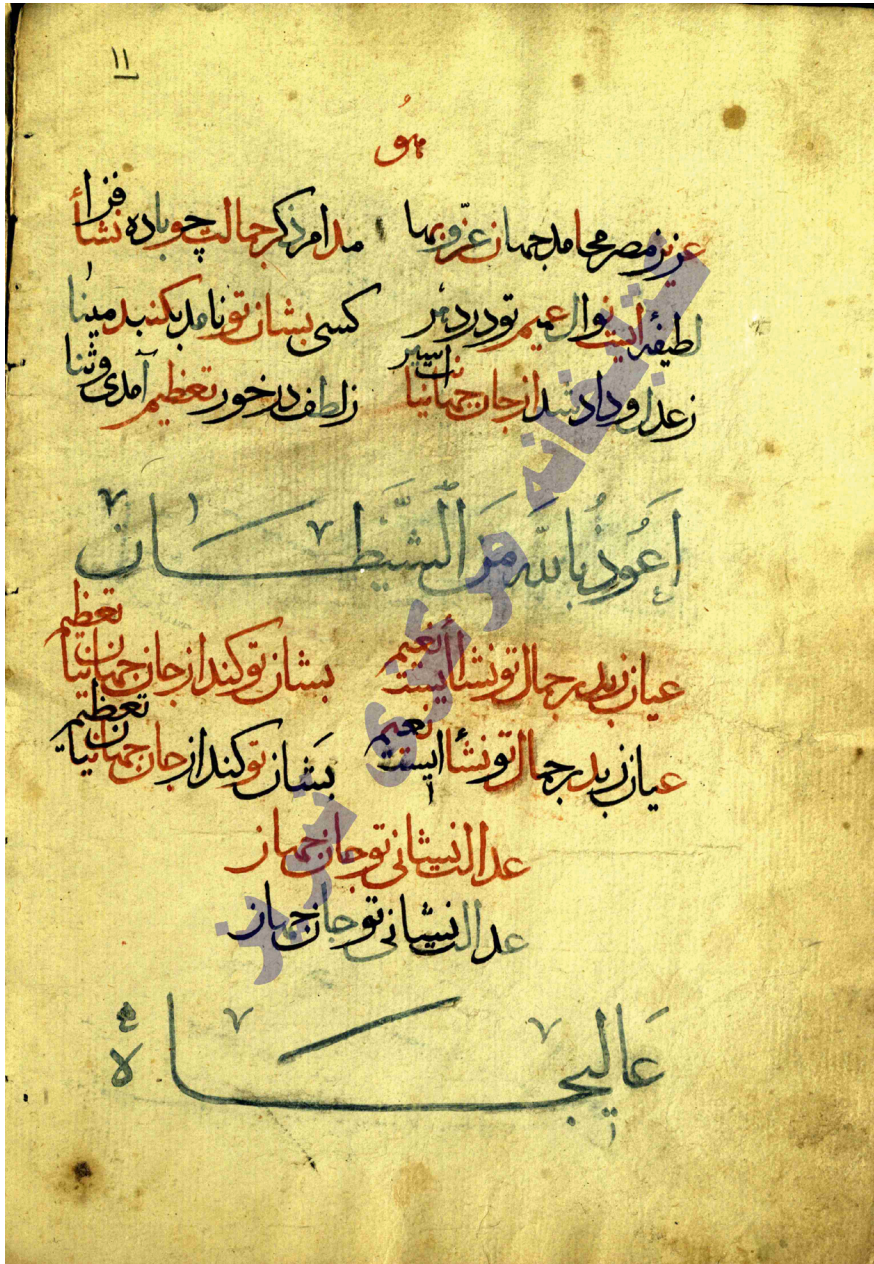 ١١
هو
عزیز مصر محامد جهان عزّ و بها مدام ذکر جمالت چو باده نشأ فزا
لطیفهٔ ایست نوال عمیم تو در دهر کسی بشان تو نامد بکنبد مینا
ز عدل و داد شد از جان جهانیانت اسیر ز لطف در خور تعظیم آمدی و ثنا
اَعُوذُ بالله مَنَ الشَّیطان
عیان زبدر جمال تو نشأ ایست نعیم بشان تو کند از جان جهانیان تعظیم
عیان زبدر جمال تو نشأ ایست نعیم بشان تو کند از جان جهانیان تعظیم
عدالت نشانی تو جان جهان
عدالت نشانی تو جان جهان
عَالیجاه